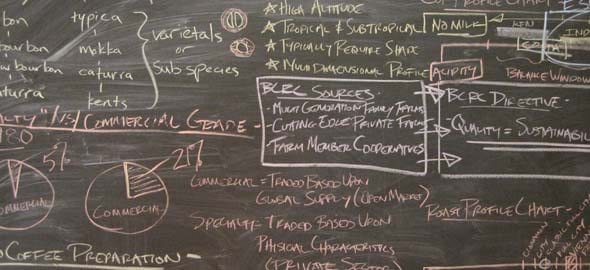 typica
bourbon
mokka
bourbon
caturra
kents
varietals
or
Sub species
★ High Altitude
★ Tropical & Subtropical
★ Typically Require Shade
★ Multi Dimensional Profile
No Milk
Acidity
Balance Window
BCRC Sources -
• Multi Generation Family Farms
• Cutting Edge Private Farms
• Farm Member Cooperatives
BCRC Directive -
- Quality = Sustainabil
Commercial Grade -
5%
21%
Commercial
Commercial
Commercial = Traded Based Upon
Global Supply (Open Market)
Specialty - Traded Based Upon
Physical Characteristics
(Private Sector)
Roast Profile Chart -
Coffee Preparation -